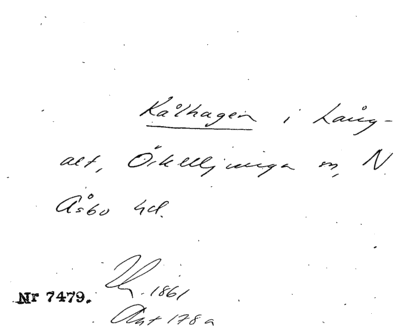 Kålhagen i Lång-
alt, Örkelljunga sn, N
Åsbo hd.
1861
Nr 7479.
Akt 178a